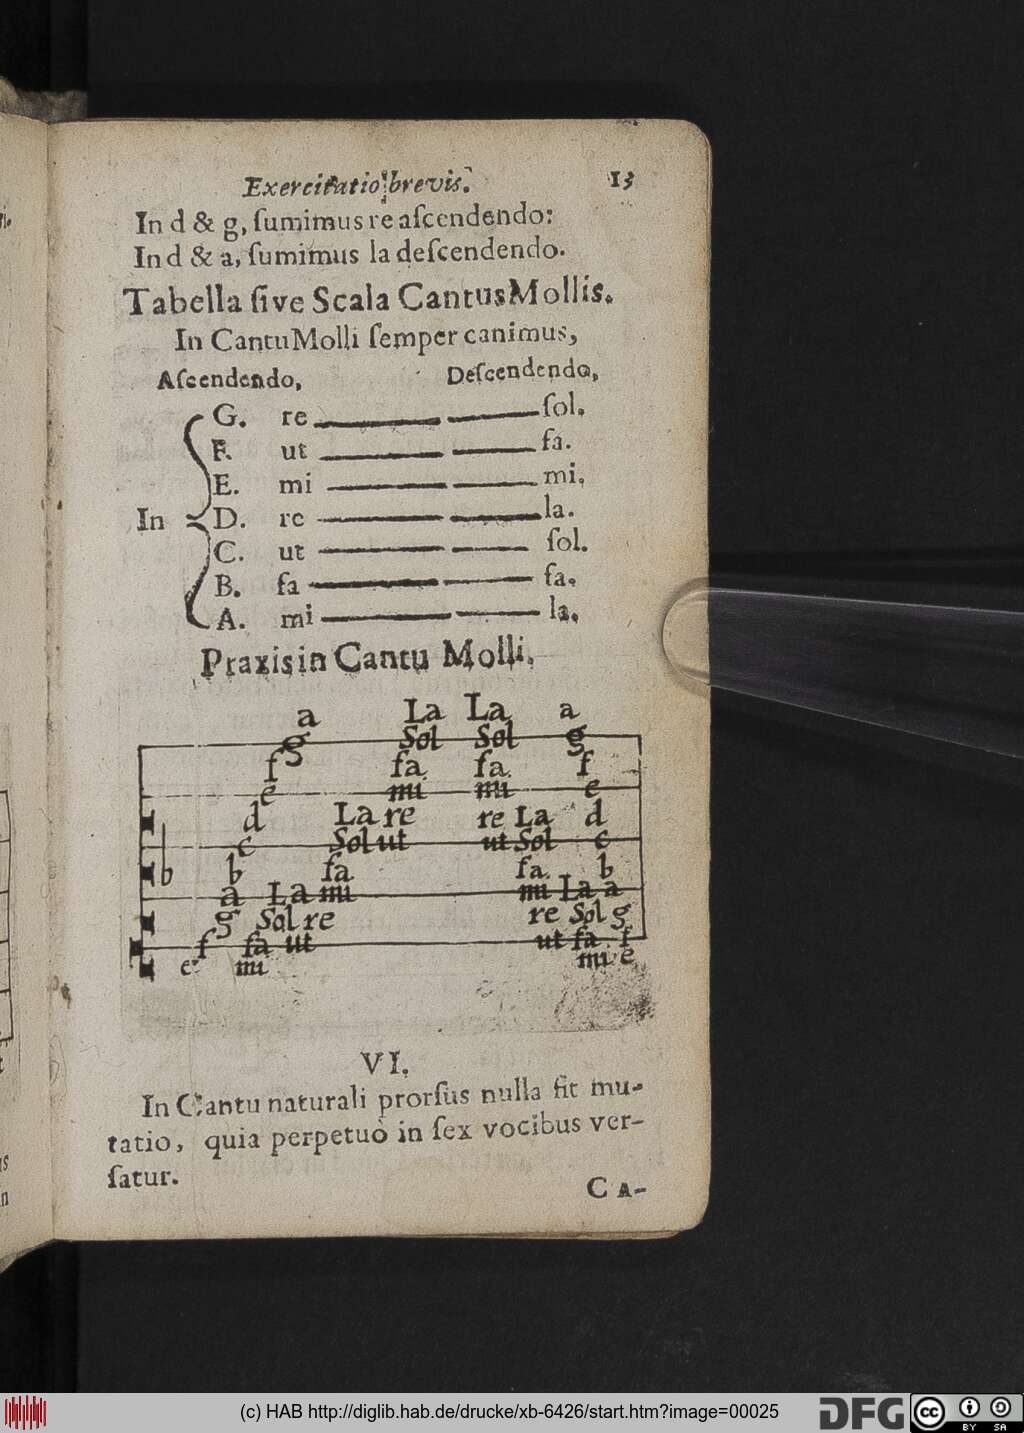 Exercitatio brevis. 13
In d & g, ſumimus re aſcendendo:
In d & a, ſumimus la deſcendendo.
Tabella ſive Scala Cantus Mollis.
In Cantu Molli ſemper canimus,
Aſcendendo, Deſcendendo,
G. re ſol.
F. ut fa.
E. mi mi.
In D. re la.
C. ut ſol.
B. fa fa.
A. mi la.
Praxis in Cantu Molli.
a La La a
g Sol Sol g
f fa fa f
e mi mi e
d La re re La d
c Sol ut ut Sol c
b b fa fa b
a La mi mi La a
g Sol re re Sol g
f fa ut ut fa f
e mi mi e
VI.
In Cantu naturali prorſus nulla fit mu-
tatio, quia perpetuò in ſex vocibus ver-
ſatur.
C A-
(c) HAB http://diglib.hab.de/drucke/xb-6426/start.htm?image=00025
DFG
cc BY SA